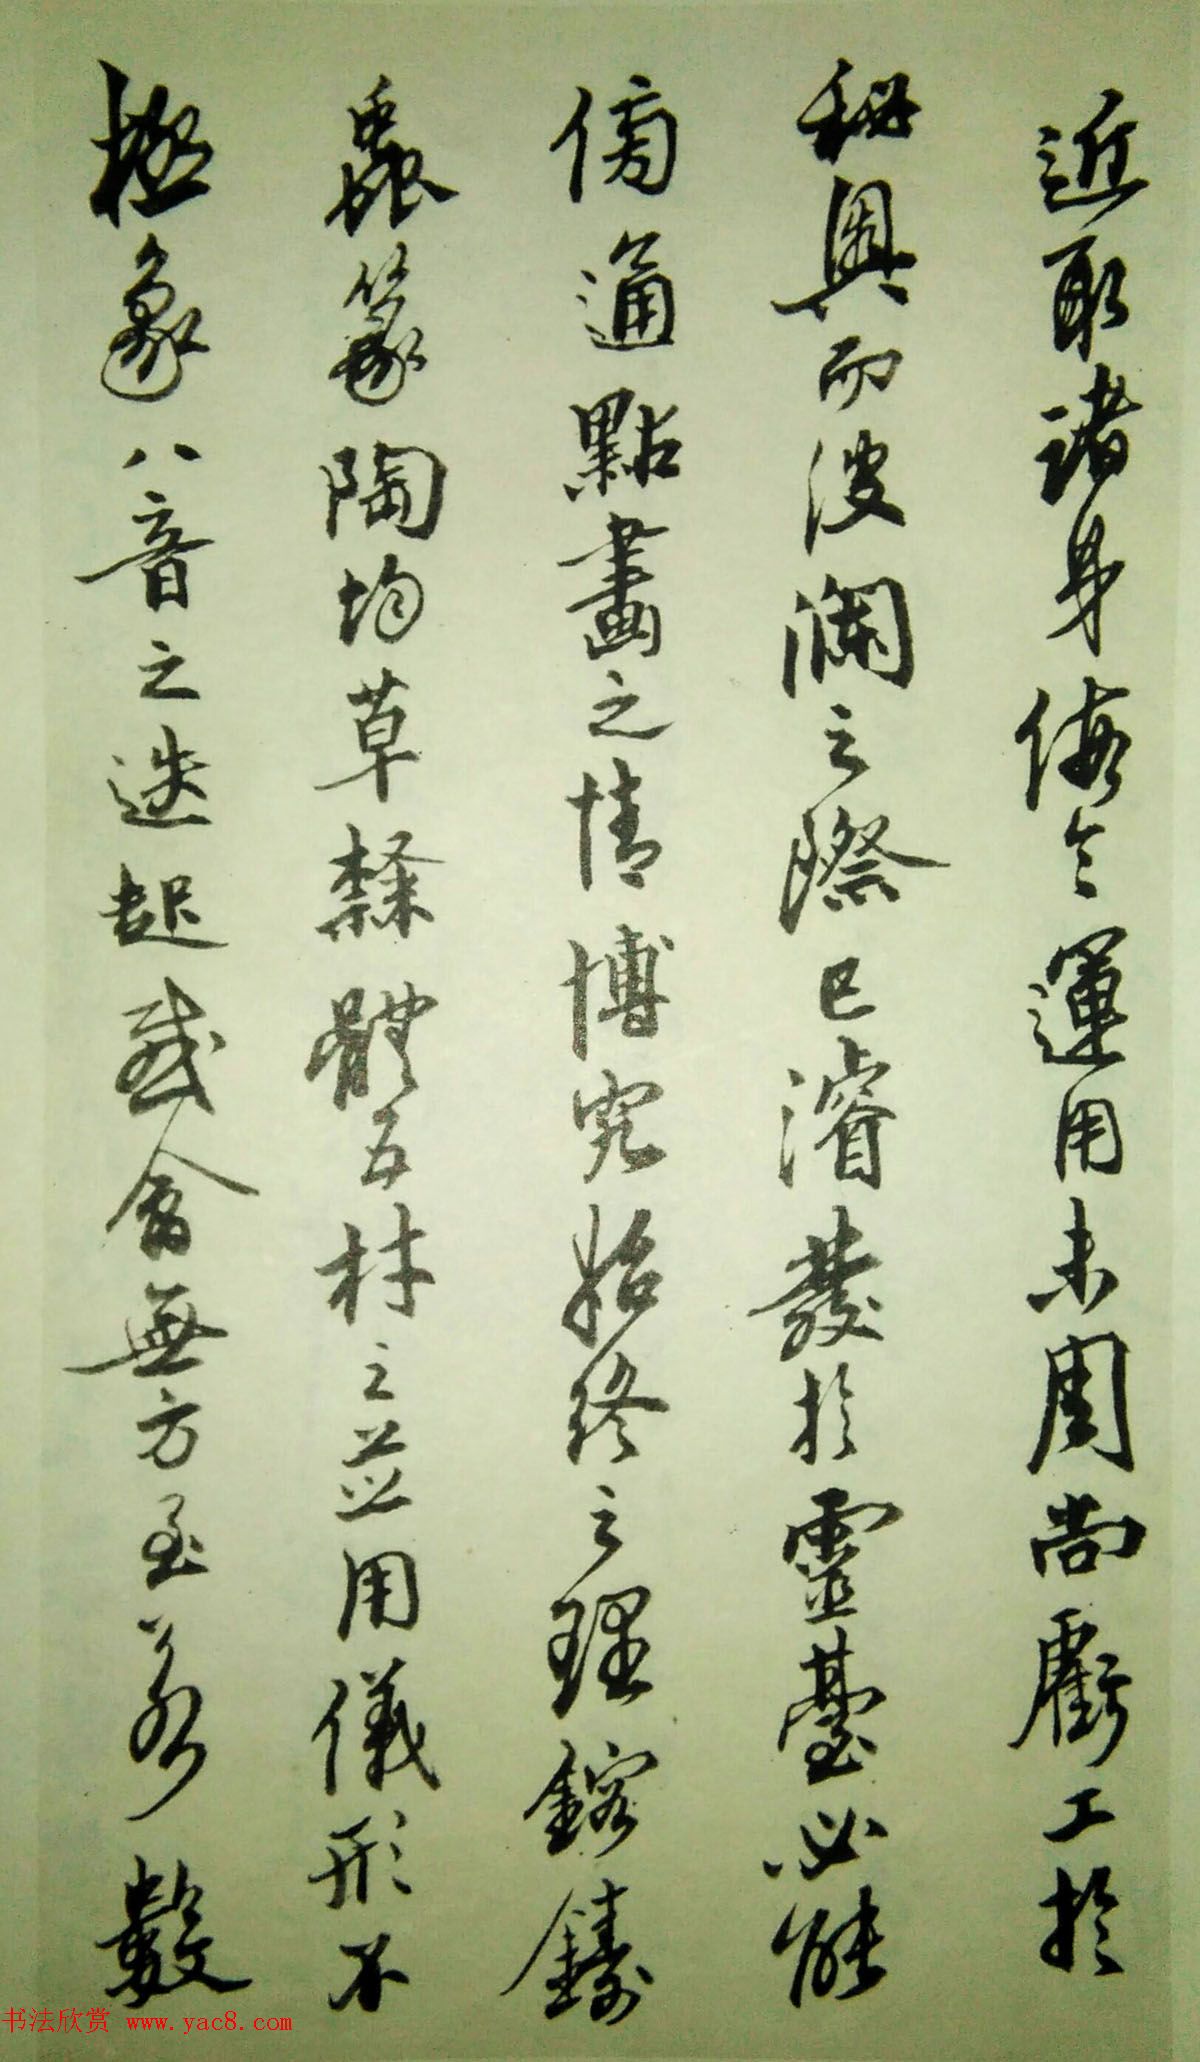 近取諸身假令運用未周尚虧工於
秘奧而波瀾之際已濬發於靈臺必能
傍通點畫之情博究始終之理鎔鑄
蟲篆陶均草隸體五材之並用儀形不
極象八音之迭起感會無方至若數
书法欣赏 www.yac8.com